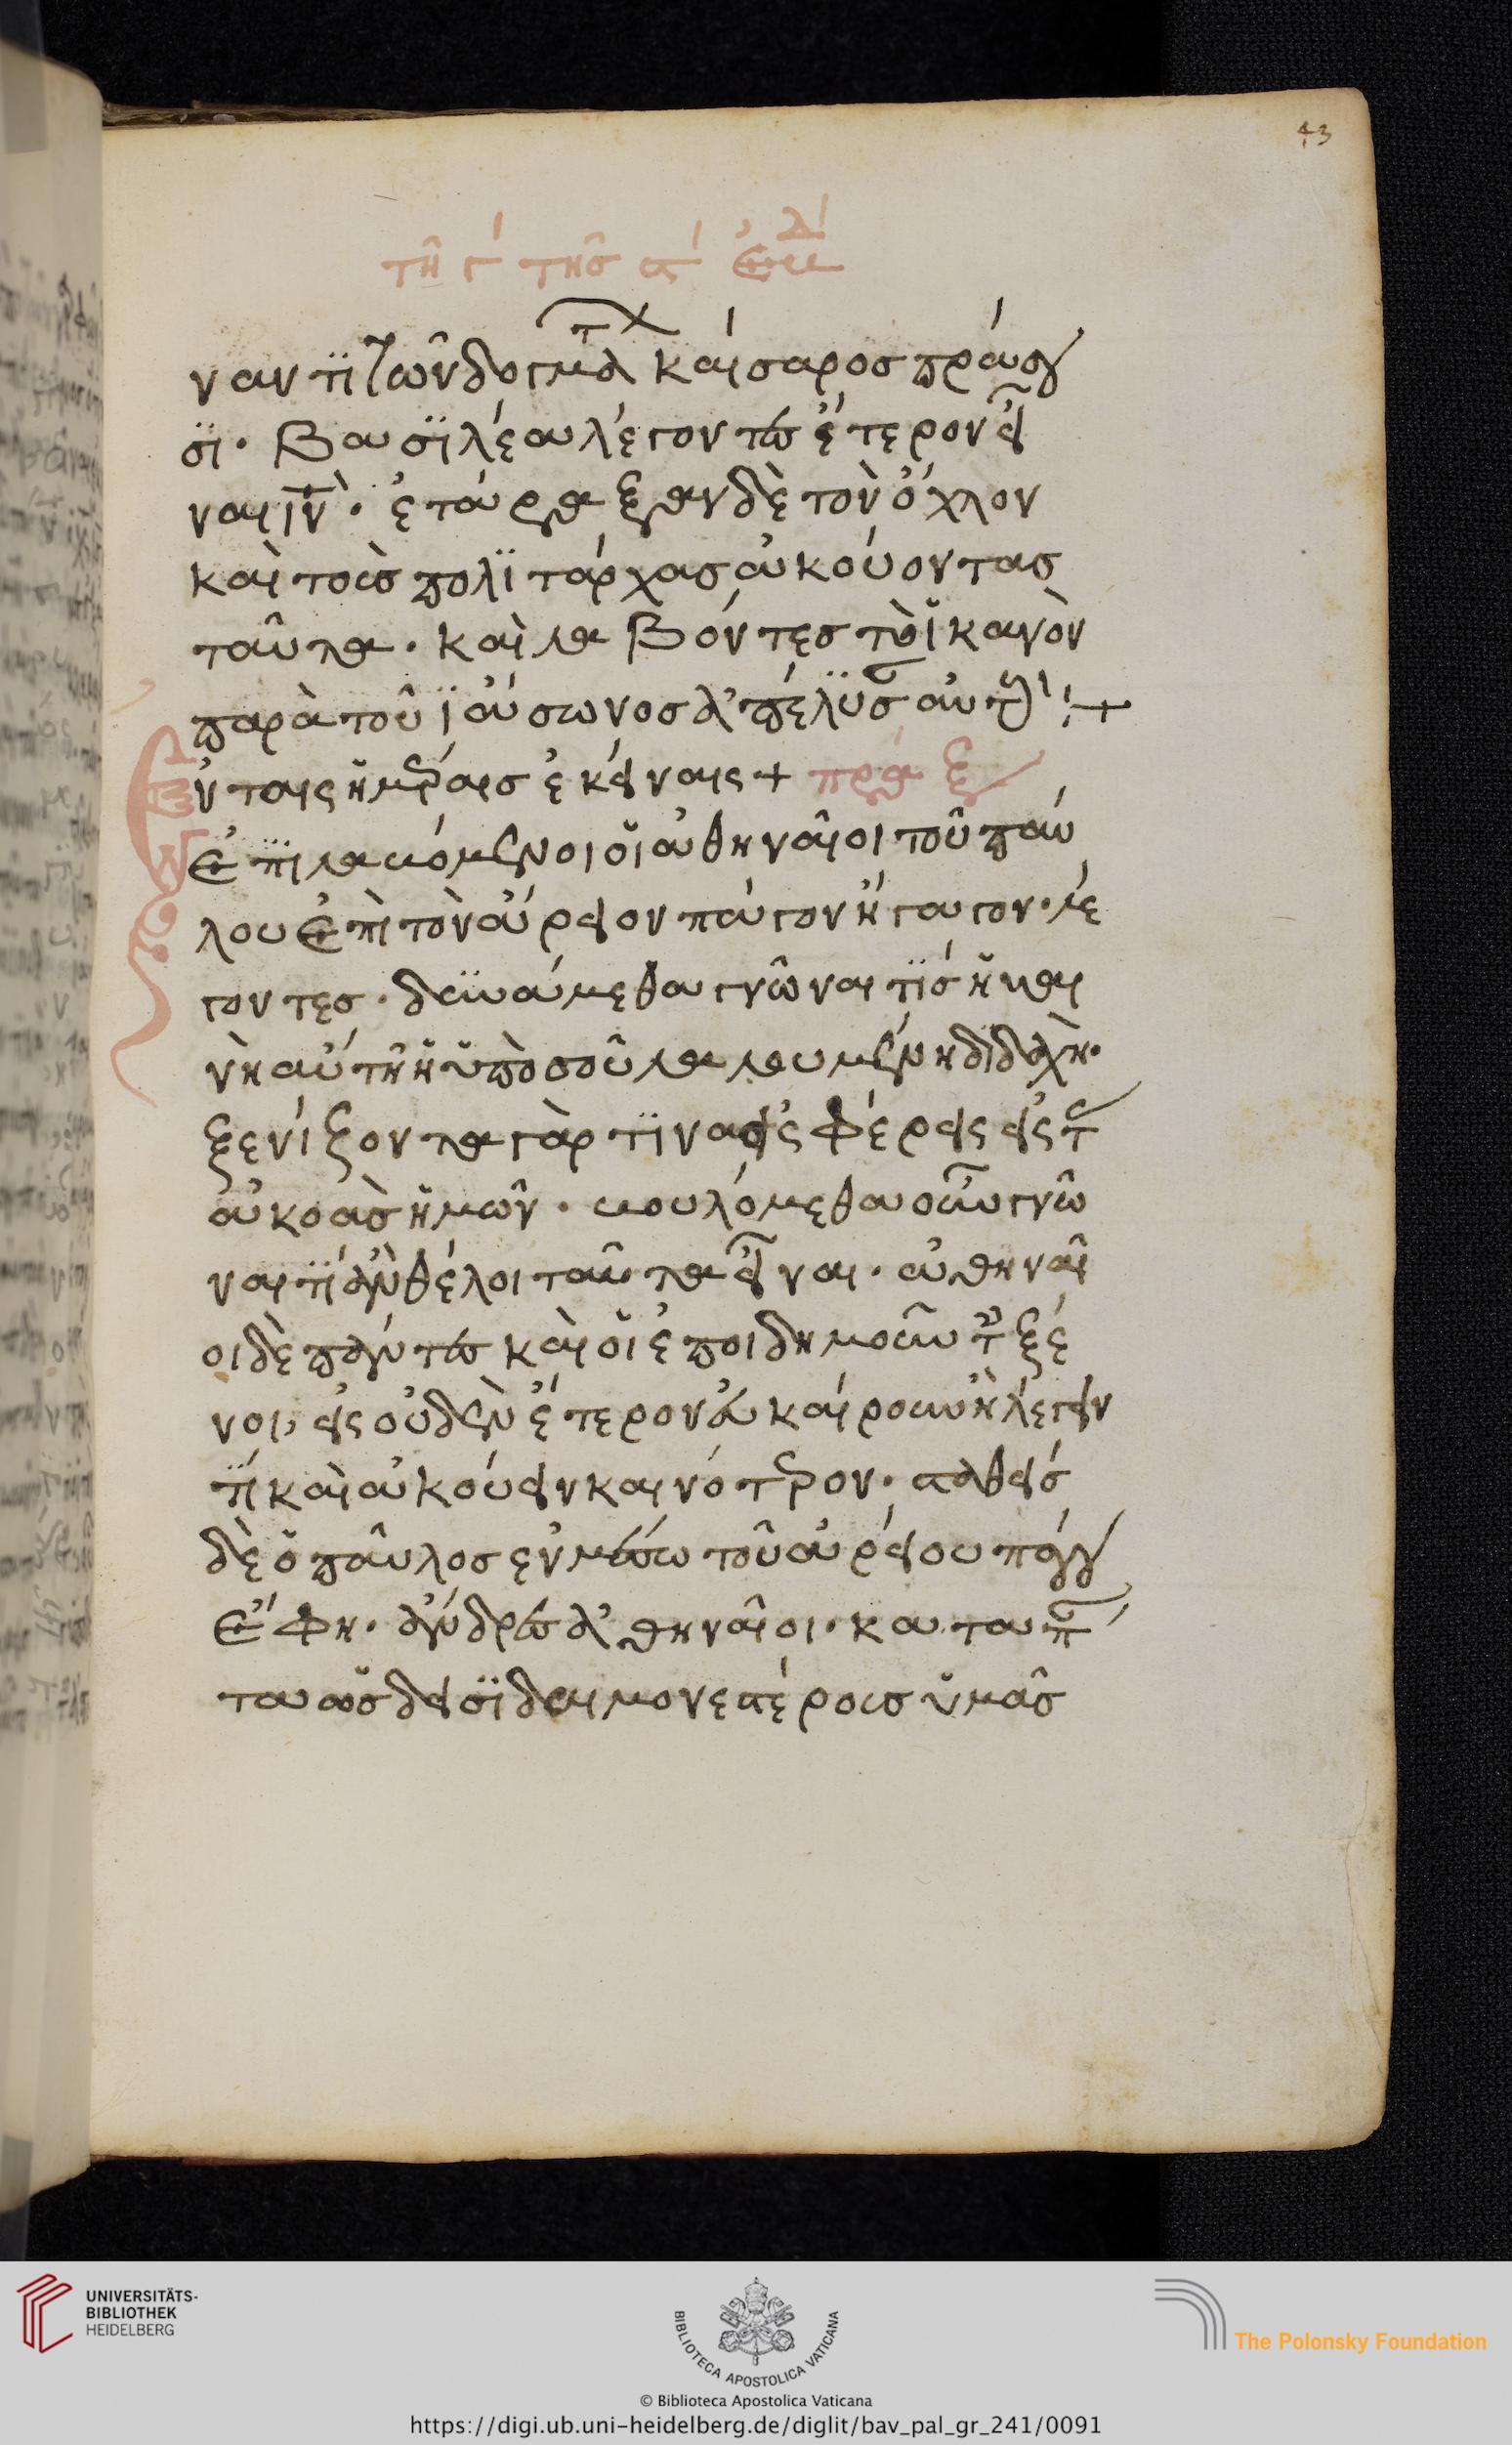 43
τῆ γ τῆς α ἑβδ
ναντι τῶν δογμάτ καίσαρος πράσσου
σι. βασιλέα λέγοντες ἕτερον εἶ
ναι ιν. ἐτάραξαν δὲ τὸν ὄχλον
καὶ τοὺς πολιτάρχας ἀκούοντας
ταῦτα. καὶ λαβόντες τὸ ἱκανὸν
παρὰ τοῦ ϊάσωνος ἀπέλυσ αὐτ
Ἐν ταις ἡμέραις ἐκείναις + πραξ
ἐπιλαβόμενοι οἱ ἀθηναῖοι τοῦ παύ
λου ἐπὶ τὸν ἄρειον πάγον ἤγαγον. λέ
γοντες. δυνάμεθα γνῶναι τίς ἡ και
νὴ αὕτη ἡ ὑπὸ σοῦ λαλουμένη διδαχὴ.
ξενίζοντα γάρ τινα εἰσφέρεις εἰς τ
ἀκοὰς ἡμῶν. βουλόμεθα οὖν γνῶ
ναι τί ἂν θέλοι ταῦτα εἶναι. ἀθηναῖ
οι δὲ πάντες καὶ οἱ ἐπιδημοῦντ ξέ
νοι, εἰς οὐδὲν ἕτερον εὐκαίρουν ἢ λέγειν
τί καὶ ἀκούειν καινότερον. σταθεὶς
δὲ ὁ παῦλος ἐν μέσω τοῦ ἀρείου πάγου
ἔφη. ἄνδρες ἀθηναῖοι. κατα π
τα ὡς δεισιδαιμονεστέρους ὑμᾶς
UNIVERSITÄTS-
BIBLIOTHEK
HEIDELBERG
BIBLIOTECA APOSTOLICA VATICANA
© Biblioteca Apostolica Vaticana
The Polonsky Foundation
https://digi.ub.uni-heidelberg.de/diglit/bav_pal_gr_241/0091